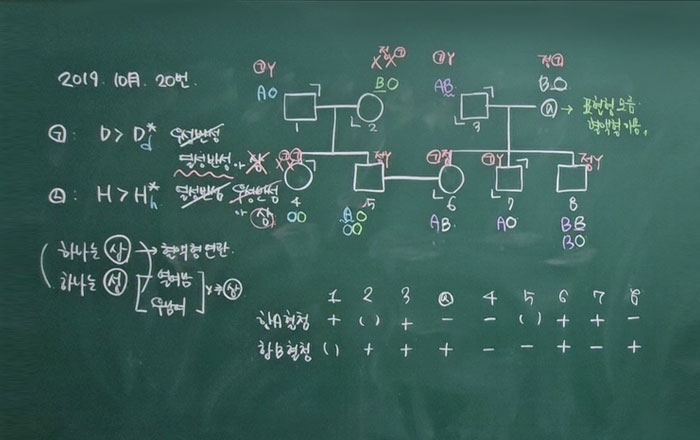 2019. 10月. 20번.
㉠ : D > D* 우성반성
d
열성반성 아 상
㉡ : H > H* 열성반성 우성반성
h
아 상
하나는 상 → 혈액형 연관.
하나는 성 열여남
우남여
상
㉠Y
AO
1
정㉠
XX
BO
2
㉠Y
AB
3
정㉠
BO
ⓐ → 표현형 모름.
혈액형 기용.
㉠㉠
XX
4
OO
정Y
5
AO
OO
㉠정
6
AB
㉠Y
7
AO
정Y
8
BB
BO
1 2 3 ⓐ 4 5 6 7 8
항A혈청 + ( ) + − − ( ) + + −
항B혈청 ( ) + + + − − + − +